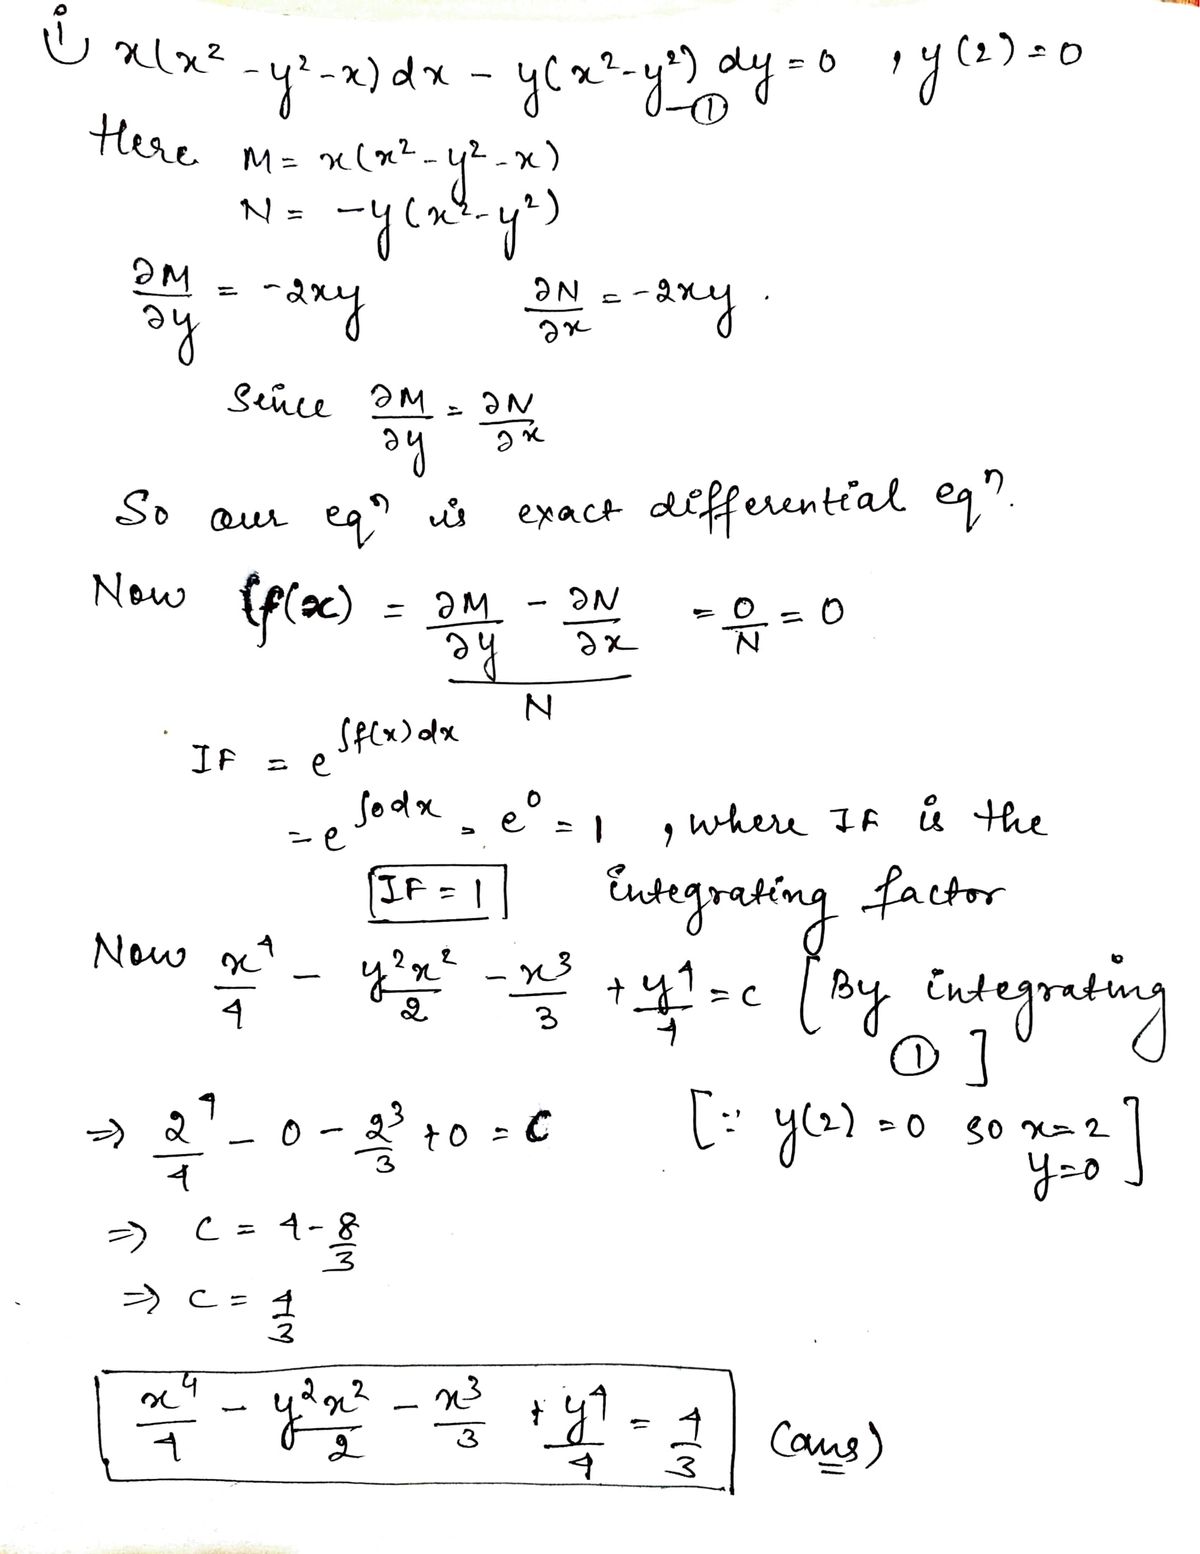 i) x(x² - y² - x) dx - y(x² - y²) dy = 0 , y(2) = 0
—①
Here M = x(x² - y² - x)
N = -y(x² - y²)
∂M/∂y = -2xy    ∂N/∂x = -2xy .
Since ∂M/∂y = ∂N/∂x
So our eqⁿ is exact differential eqⁿ.
Now f(x) = (∂M/∂y - ∂N/∂x)/N = 0/N = 0
IF = e^∫f(x)dx
= e^∫0dx = e⁰ = 1 , where IF is the
IF = 1 integrating factor
Now x⁴/4 - y²x²/2 - x³/3 + y⁴/4 = c [By integrating
①]
⇒ 2⁴/4 - 0 - 2³/3 + 0 = C [∵ y(2) = 0 so x = 2
y = 0]
⇒ C = 4 - 8/3
⇒ C = 4/3
x⁴/4 - y²x²/2 - x³/3 + y⁴/4 = 4/3 (ans)